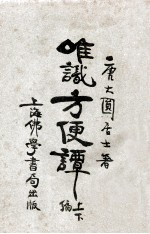 唐大圓居士著
唯識方便譚
上下編
上海佛學書局出版